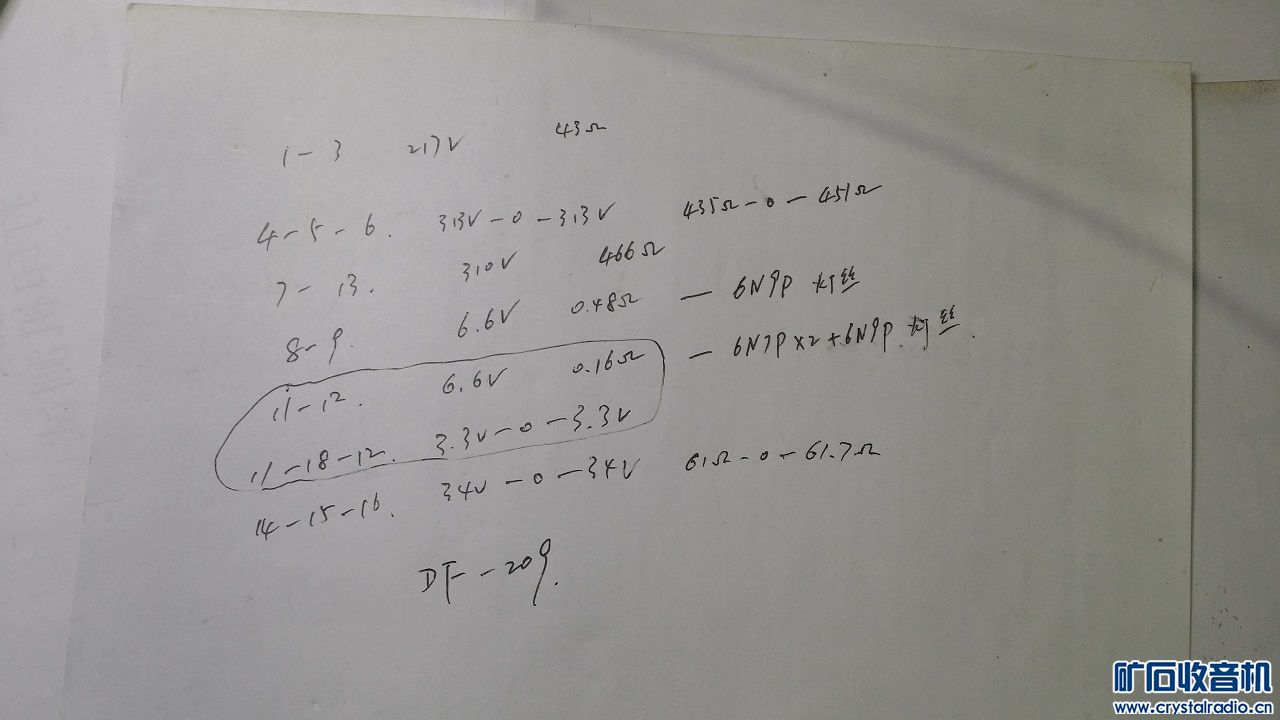 1-3 217V 43Ω
4-5-6. 313V-0-313V 435Ω-0-451Ω
7-13. 310V 466Ω
8-9. 6.6V 0.48Ω — 6N9P 灯丝
11-12. 6.6V 0.16Ω — 6N7P×2+6N9P 灯丝.
11-18-12. 3.3V-0-3.3V
14-15-16. 34V-0-34V 61Ω-0-61.7Ω
DF-209.
矿石收音机
www.crystalradio.cn